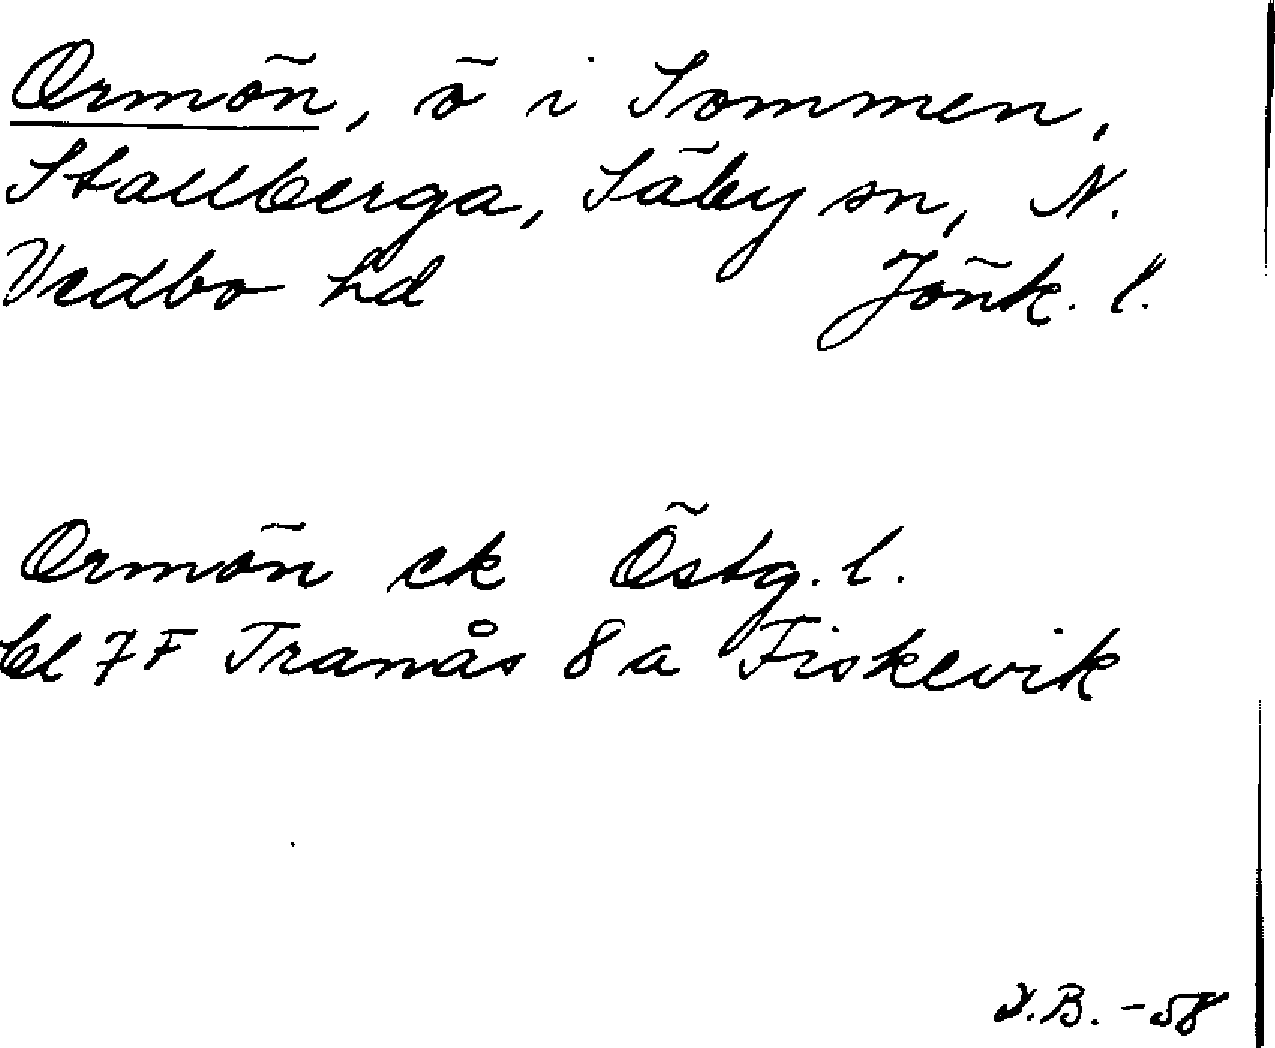 Ormön, ö i Sommen,
Stallberga, Säby sn, N.
Vedbo hd Jönk. l.
Ormön ek Östg. l.
bl 7F Tranås 8a Fiskevik
B. -58